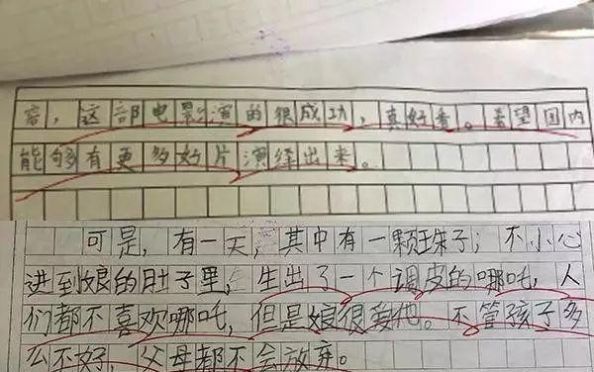 容，这部电影演的很成功，真好看。希望国内
能够有更多好片演绎出来。
可是，有一天，其中有一颗珠子；不小心
进到娘的肚子里，生出了一个调皮的哪吒，人
们都不喜欢哪吒，但是娘很爱他。不管孩子多
么不好，父母都不会放弃。